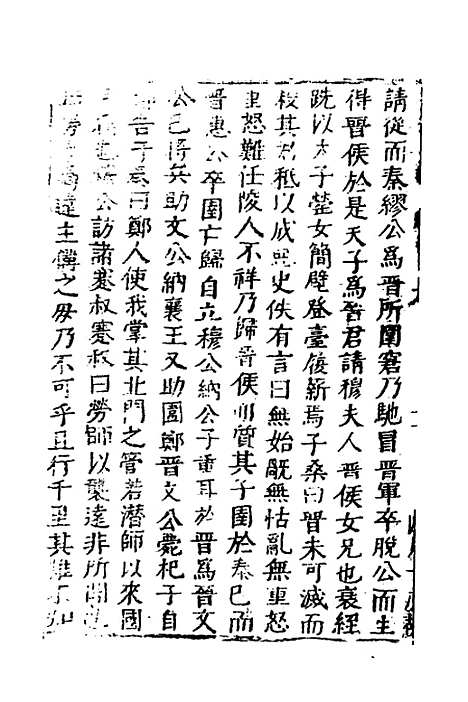 請從而秦繆公爲晉所圍窘乃馳冒晉軍卒脫公而生
得晉侯於是天子爲晉君請穆夫人晉侯女兄也衰絰
跣以太子罃女簡璧登臺履薪焉子桑曰晉未可滅而
殺其君秪以成惡史佚有言曰無始亂無怙亂無重怒
重怒難任陵人不祥乃歸晉侯而質其子圉於秦已而
晉惠公卒圉亡歸自立穆公納公子重耳於晉爲晉文
公已將兵助文公納襄王又助圍鄭晉文公薨杞子自
鄭告于秦曰鄭人使我掌其北門之管若潛師以來國
可得也穆公訪諸蹇叔蹇叔曰勞師以襲遠非所聞也
師勞力竭遠主備之毋乃不可乎且行千里其誰不知